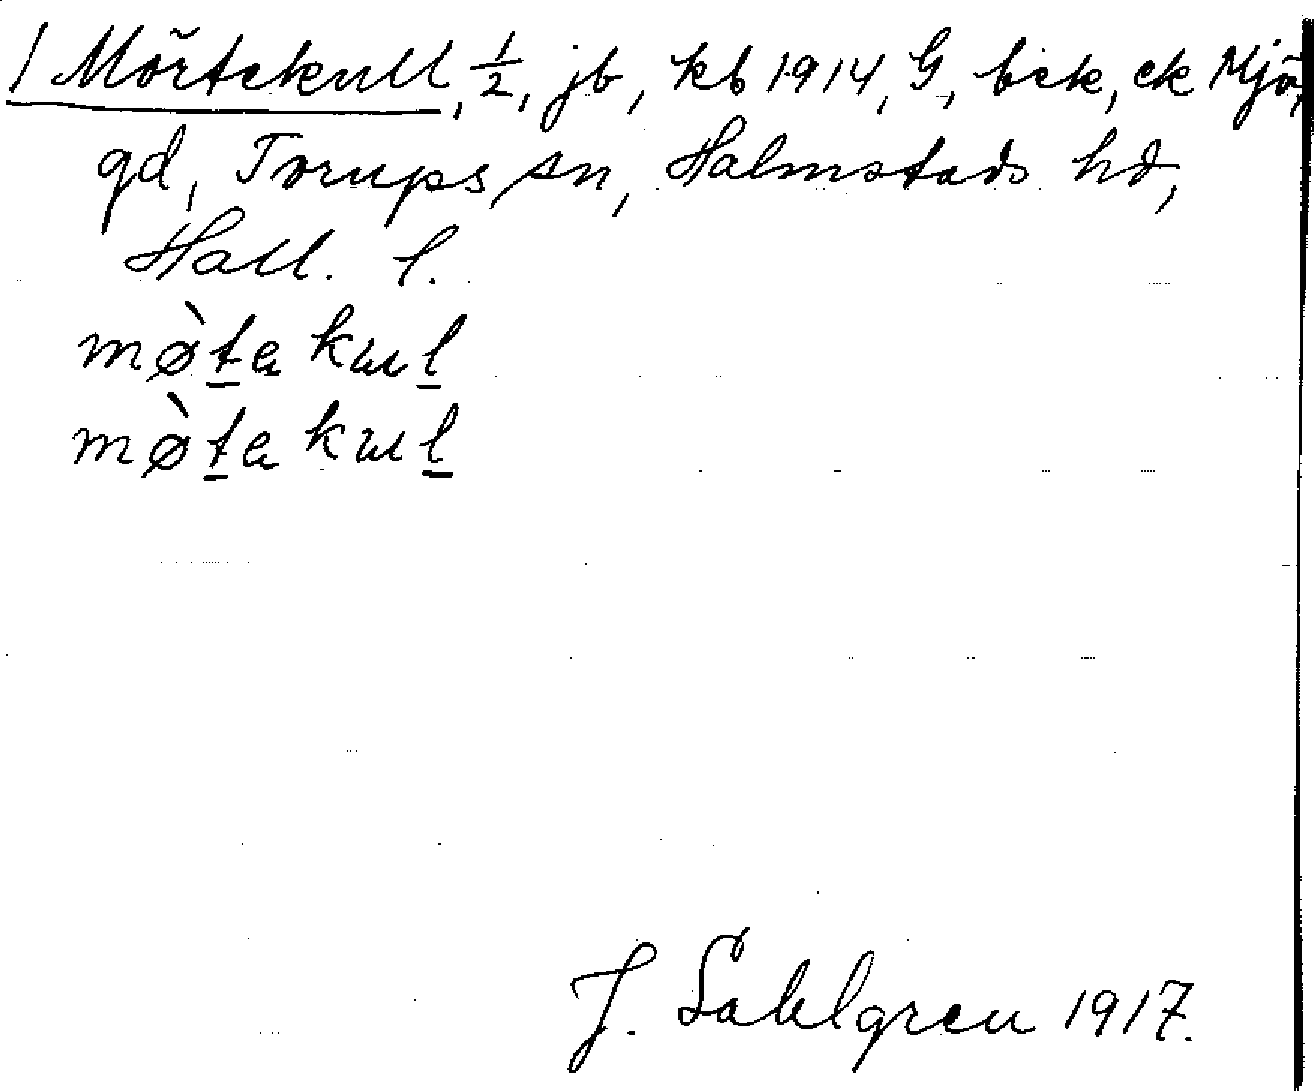 / Mörtekull, 1/2, jb, kb 1914, G, bek, ek Mjö,
gd, Torups sn, Halmstads hd,
Hall. l.
mø̀ta kul
mø̀ta kul
J. Sahlgren 1917.